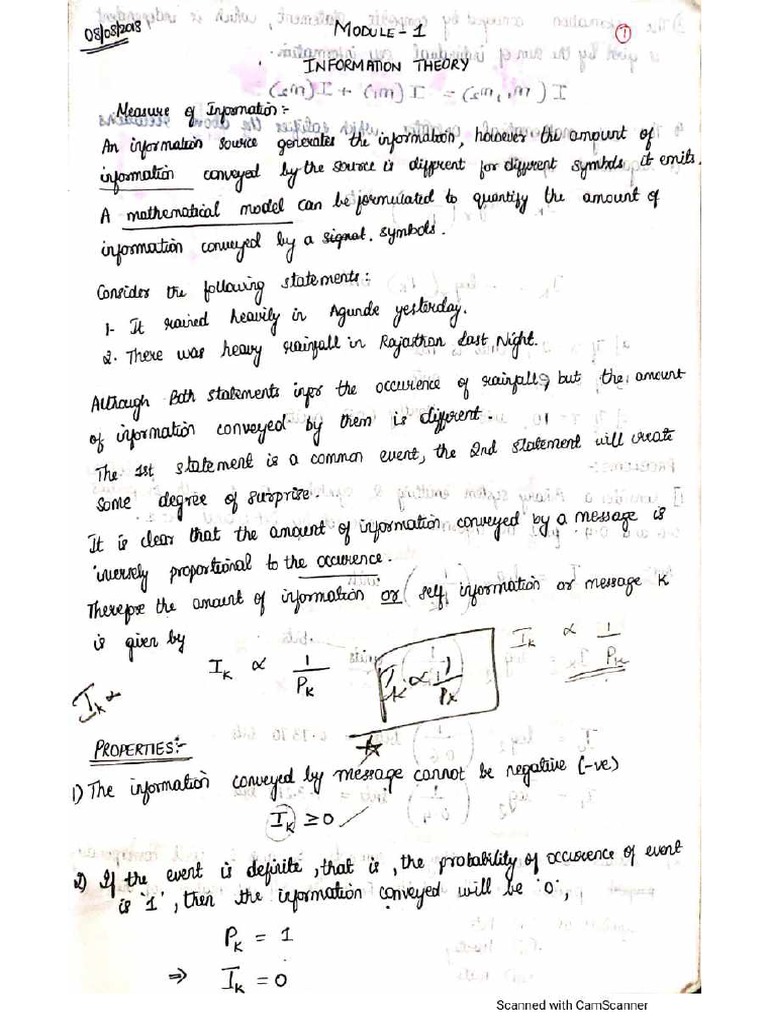 08/08/2018
MODULE-1
1
INFORMATION THEORY
Measure of Information:-
An information source generates the information, however the amount of
information conveyed by the source is different for different symbols it emits.
A mathematical model can be formulated to quantify the amount of
information conveyed by a signal. symbols.
Consider the following statements:
1- It rained heavily in Agumbe yesterday.
2. There was heavy rainfall in Rajasthan Last Night.
Although Both statements infer the occurence of rainfall, but the amount
of information conveyed by them is different.
The 1st statement is a common event, the 2nd statement will create
some degree of surprise.
It is clear that the amount of information conveyed by a message is
inversely proportional to the occurence.
Therefore the amount of information or self information or message K
is given by
I_K ∝ 1/P_K
I_K ∝ 1/P_K
I_K ∝ 1/P_K
I_K ∝
PROPERTIES:-
1) The information conveyed by message cannot be negative (-ve)
I_K ≥ 0
2) If the event is definite, that is, the probability of occurence of event
is '1', then the information conveyed will be '0',
P_K = 1
⇒ I_K = 0
Scanned with CamScanner